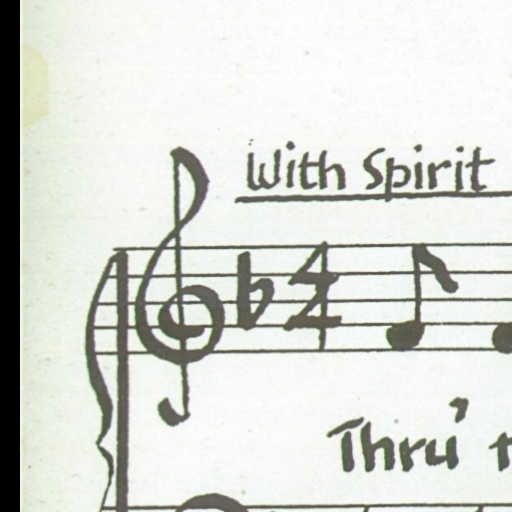 With Spirit
Thru'